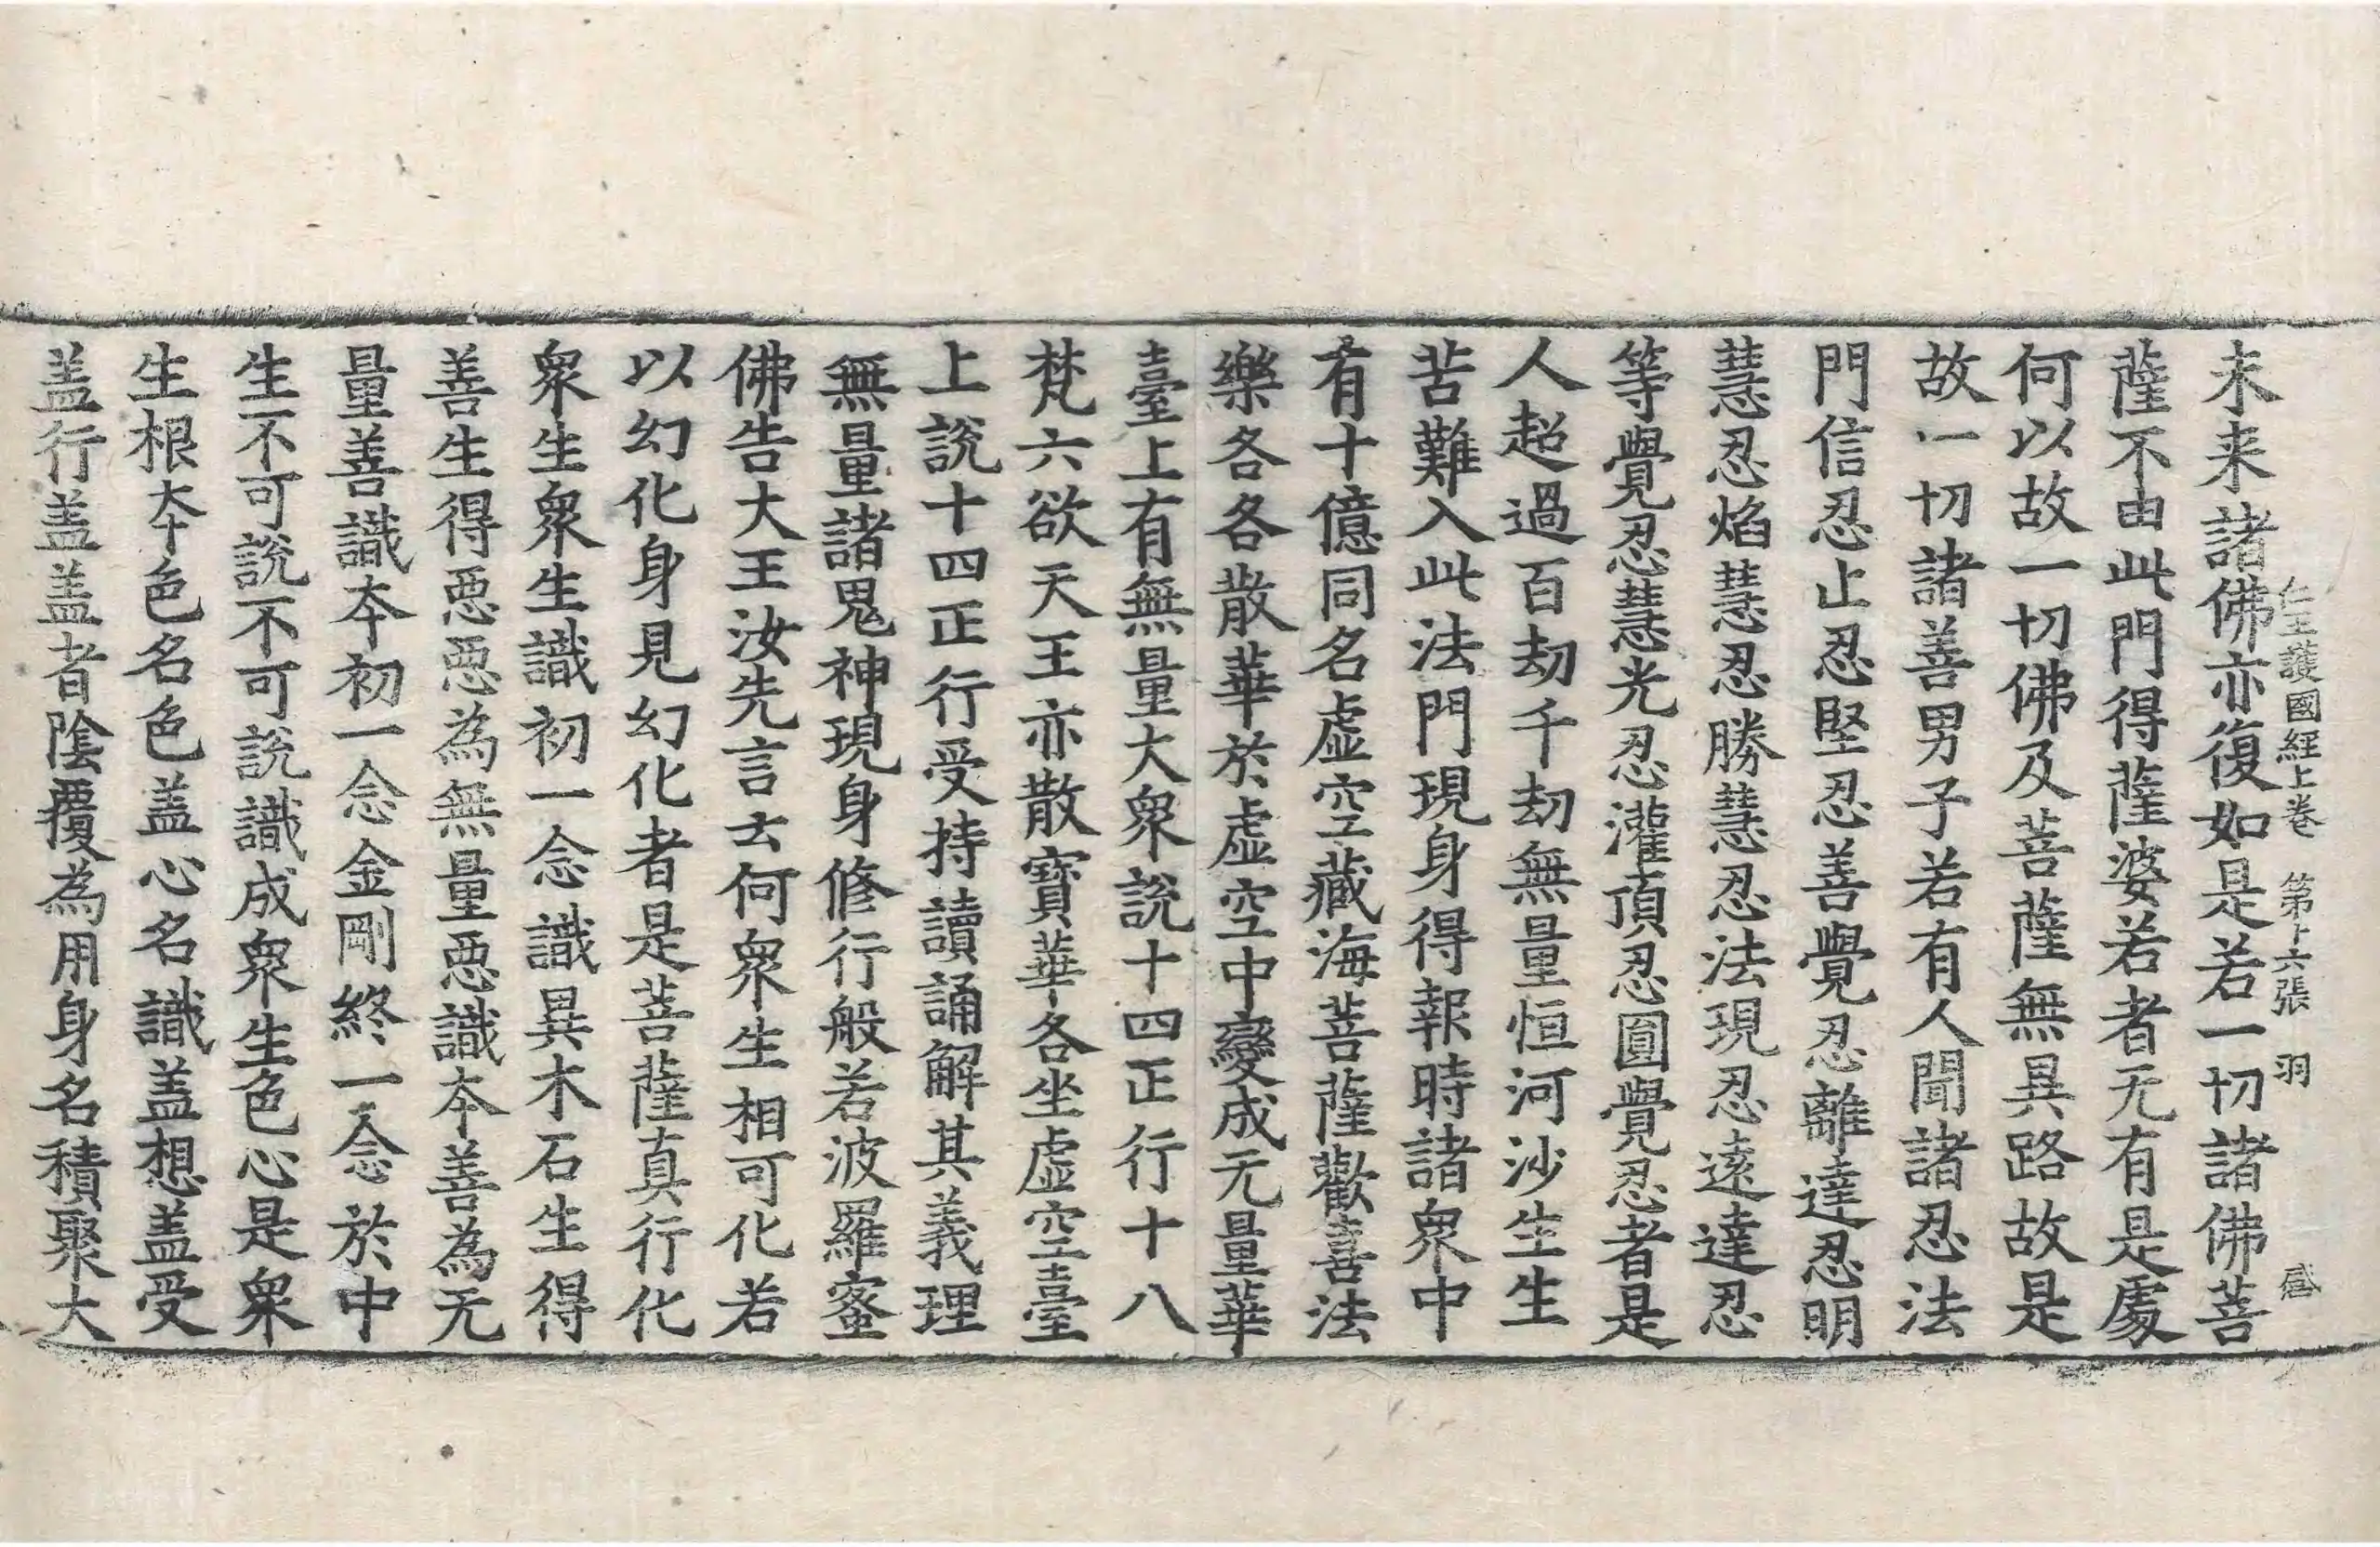 仁王護國經上卷 第十六張 羽
未来諸佛亦復如是若一切諸佛菩
薩不由此門得薩婆若者无有是處
何以故一切佛及菩薩無異路故是
故一切諸善男子若有人聞諸忍法
門信忍止忍堅忍善覺忍離達忍明
慧忍焰慧忍勝慧忍法現忍遠達忍
等覺忍慧光忍灌頂忍圓覺忍者是
人超過百劫千劫無量恒河沙生生
苦難入此法門現身得報時諸衆中
有十億同名虛空藏海菩薩歡喜法
樂各各散華於虛空中變成无量華
臺上有無量大衆說十四正行十八
梵六欲天王亦散寶華各坐虛空臺
上說十四正行受持讀誦解其義理
無量諸鬼神現身修行般若波羅蜜
佛告大王汝先言云何衆生相可化若
以幻化身見幻化者是菩薩真行化
衆生衆生識初一念識異木石生得
善生得惡惡為無量惡識本善為无
量善識本初一念金剛終一念於中
生不可說不可說識成衆生色心是衆
生根本色名色盖心名識盖想盖受
盖行盖盖者陰覆為用身名積聚大